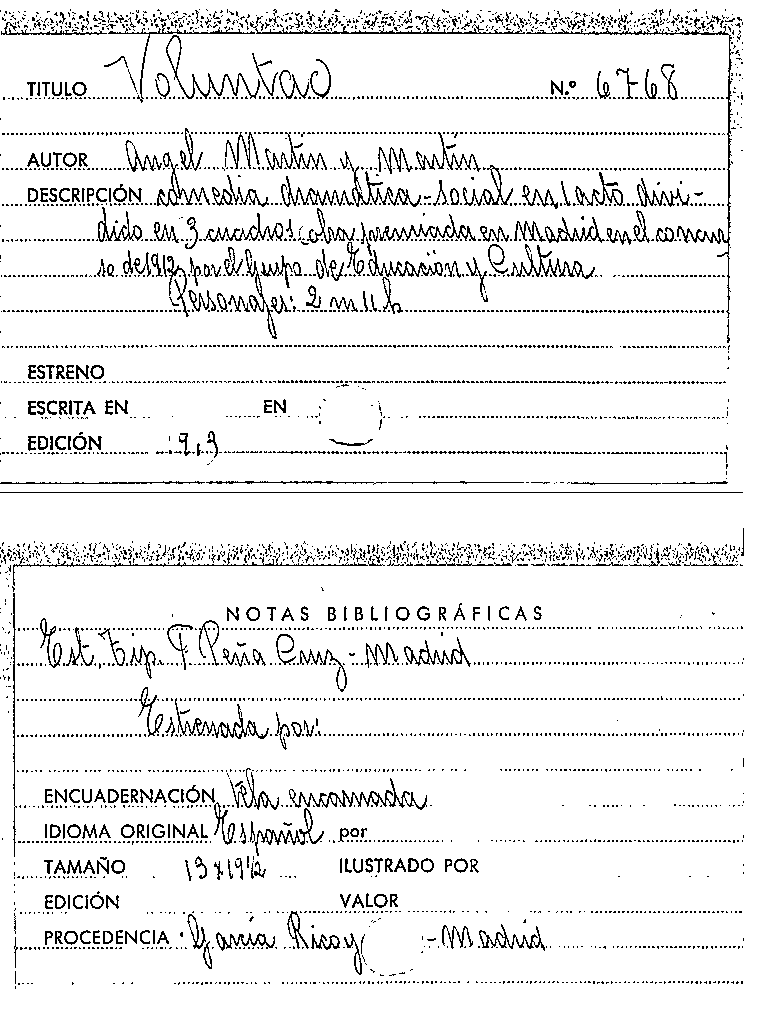 TITULO Voluntad N.º 6768
AUTOR Angel Martin y Martín
DESCRIPCIÓN comedia dramática-social en 1 acto divi-
dido en 3 cuadros obra premiada en Madrid en el concur
so de 1912 por el Grupo de Educación y Cultura
Personajes: 2 m 11 h
ESTRENO
ESCRITA EN EN
EDICIÓN
NOTAS BIBLIOGRÁFICAS
Est. Tip. F Peña Cruz - Madrid
Estrenada por:
ENCUADERNACIÓN Tela encarnada
IDIOMA ORIGINAL Español por
TAMAÑO 13 x 19 1/2 ILUSTRADO POR
EDICIÓN VALOR
PROCEDENCIA García Rico y - Madrid